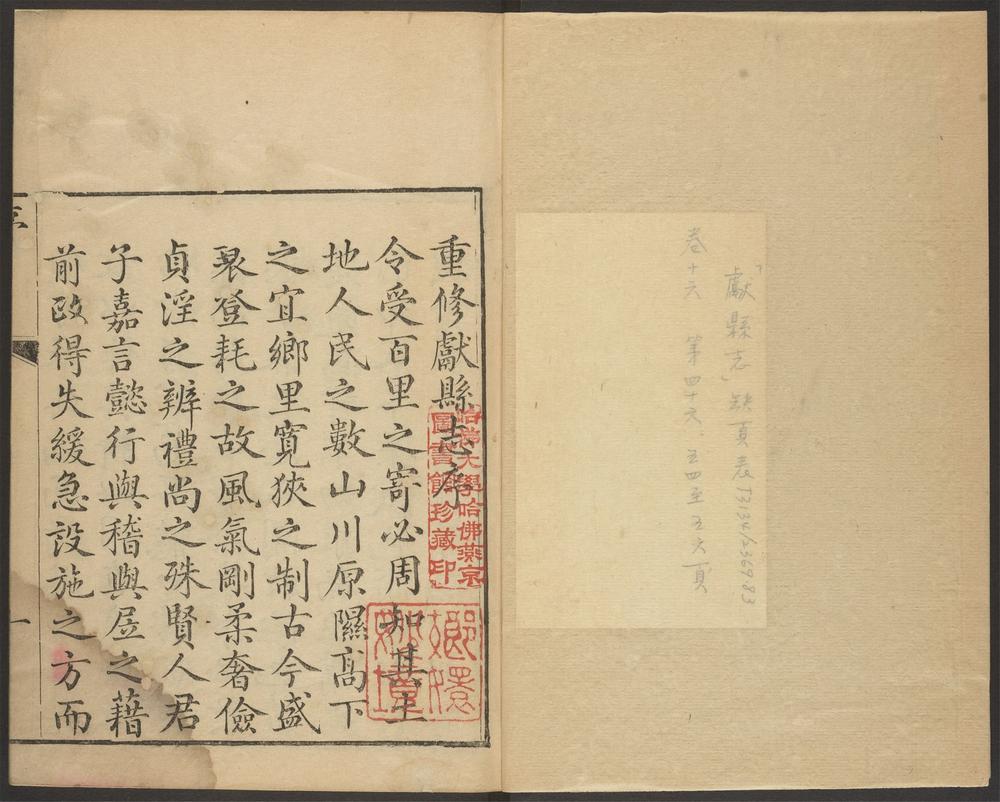 「獻縣志」缺頁表 T3134/2369.83
卷十六 第四十六、五四至五六頁
重修獻縣志序
令受百里之寄必周知其土
地人民之數山川原隰高下
之宜鄉里寬狹之制古今盛
衰登耗之故風氣剛柔奢儉
貞淫之辨禮尚之殊賢人君
子嘉言懿行與稽與居之藉
前政得失緩急設施之方而
一
哈佛大學哈佛燕京
圖書館珍藏印
嫏嬛